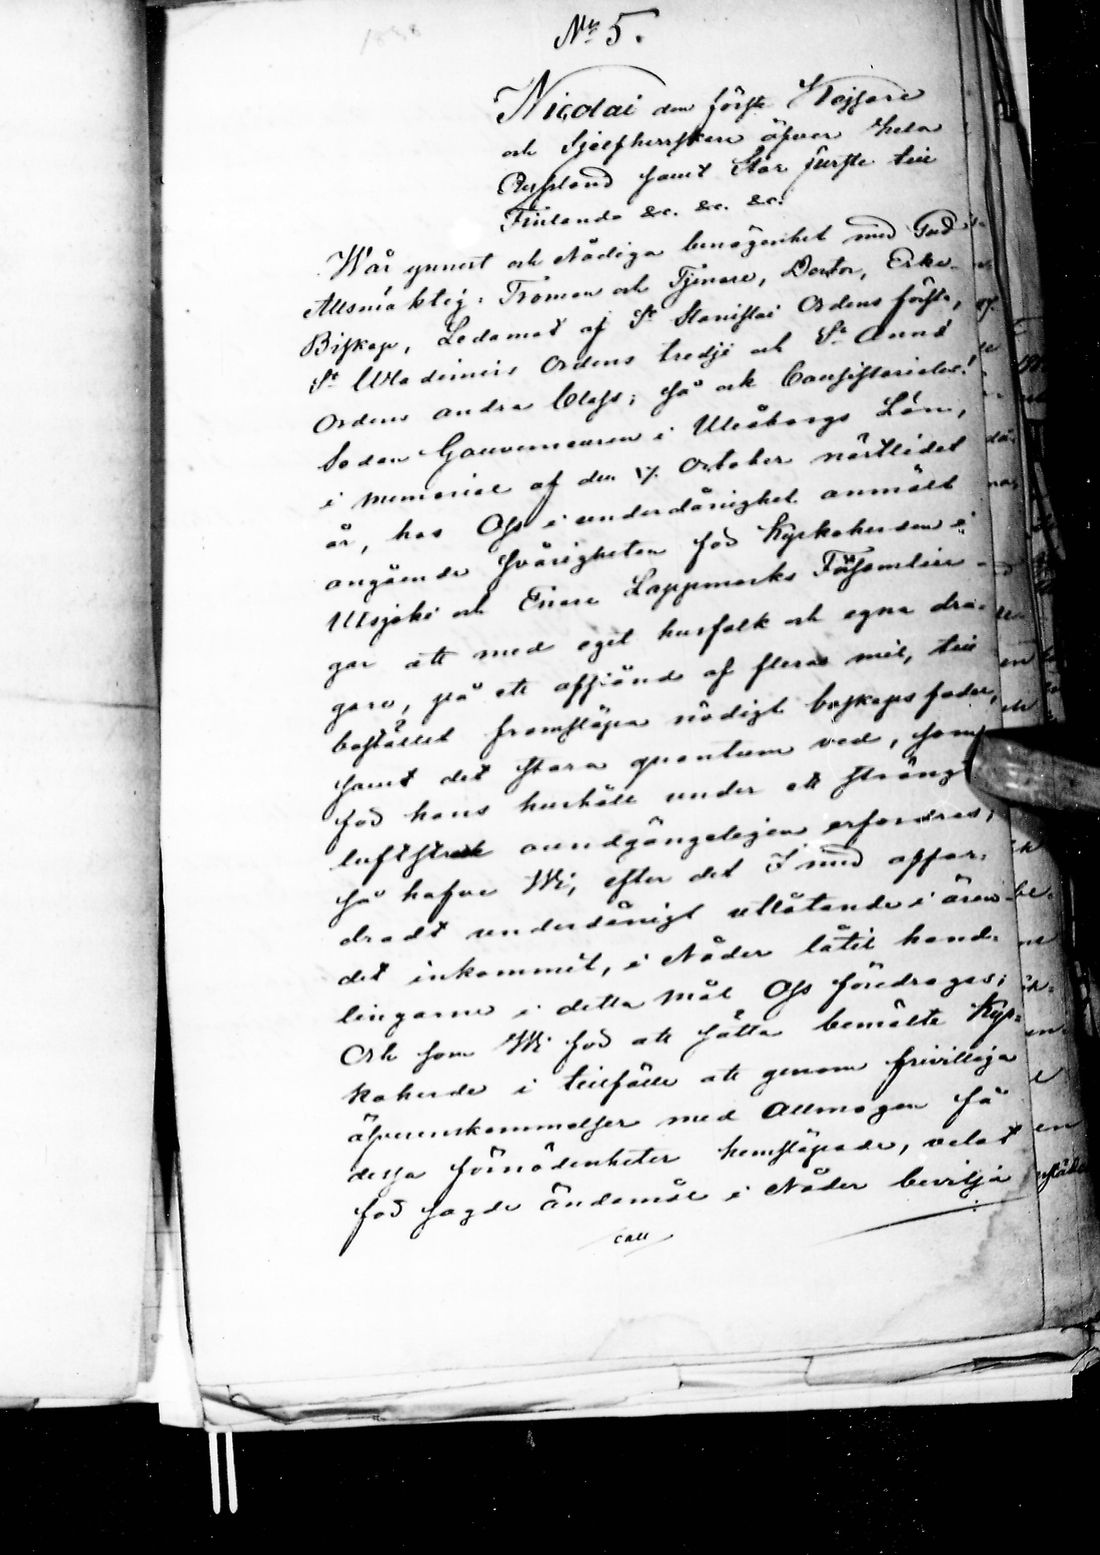 1838
No 5.
Nicolai den förste Kejsare
och Sjelfherrskare öfver hela
Ryssland samt Stor furste till
Finland &c. &c. &c.
Wår ynnest och Nådiga benägenhet med Gud
Allsmäktig: Troman och Tjenare, Doctor, Erke-
Biskop, Ledamot af St Stanislai Ordens första,
St Wladimirs Ordens tredje och St Annæ
Ordens andra Class; så ock Consistoriales!
Sedan Gouverneuren i Uleåborgs Län,
i memorial af den 17 October nästlidet
år, hos Oss i underdånighet anmält
angående svårigheten för Kyrkoherden i
Utsjoki och Enare Lappmarks Församlin-
gar att med eget husfolk och egna dra-
gare, på ett afstånd af flera mil, till
bostället framsläpa nödigt boskapsfoder,
samt det stora quantum ved, som
för hans hushåll under ett strängt
luftstrek oundgängeligen erfordras;
så hafve Wi, efter det I med affor-
dradt underdånigt utlåtande i ären-
det inkommit, i Nåder låtit hand-
lingarne i detta mål Oss föredragas;
Och som Wi för att sätta bemälte Kyr-
koherde i tillfälle att genom frivilliga
öfverenskommelser med Allmogen få
dessa förnödenheter hemsläpade, velat
för sagde ändamål i Nåder bevilja